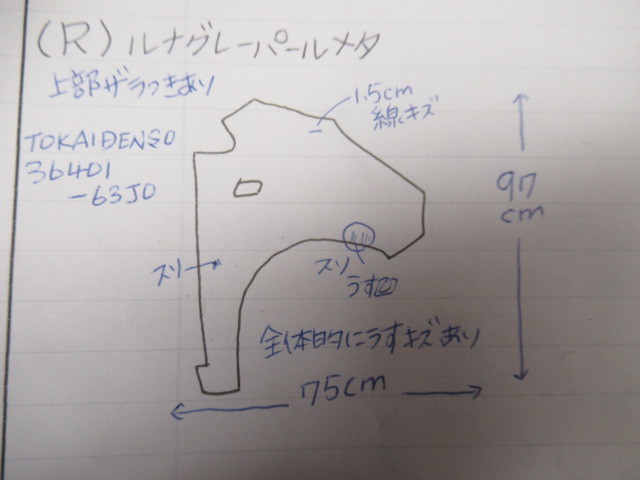 (R) ルナグレーパールメタ
上部ザラつきあり
TOKAIDENSO
36401
-63J0
1.5cm
線キズ
97
cm
スリ
スリ
うす凹
全体的にうすキズあり
75cm